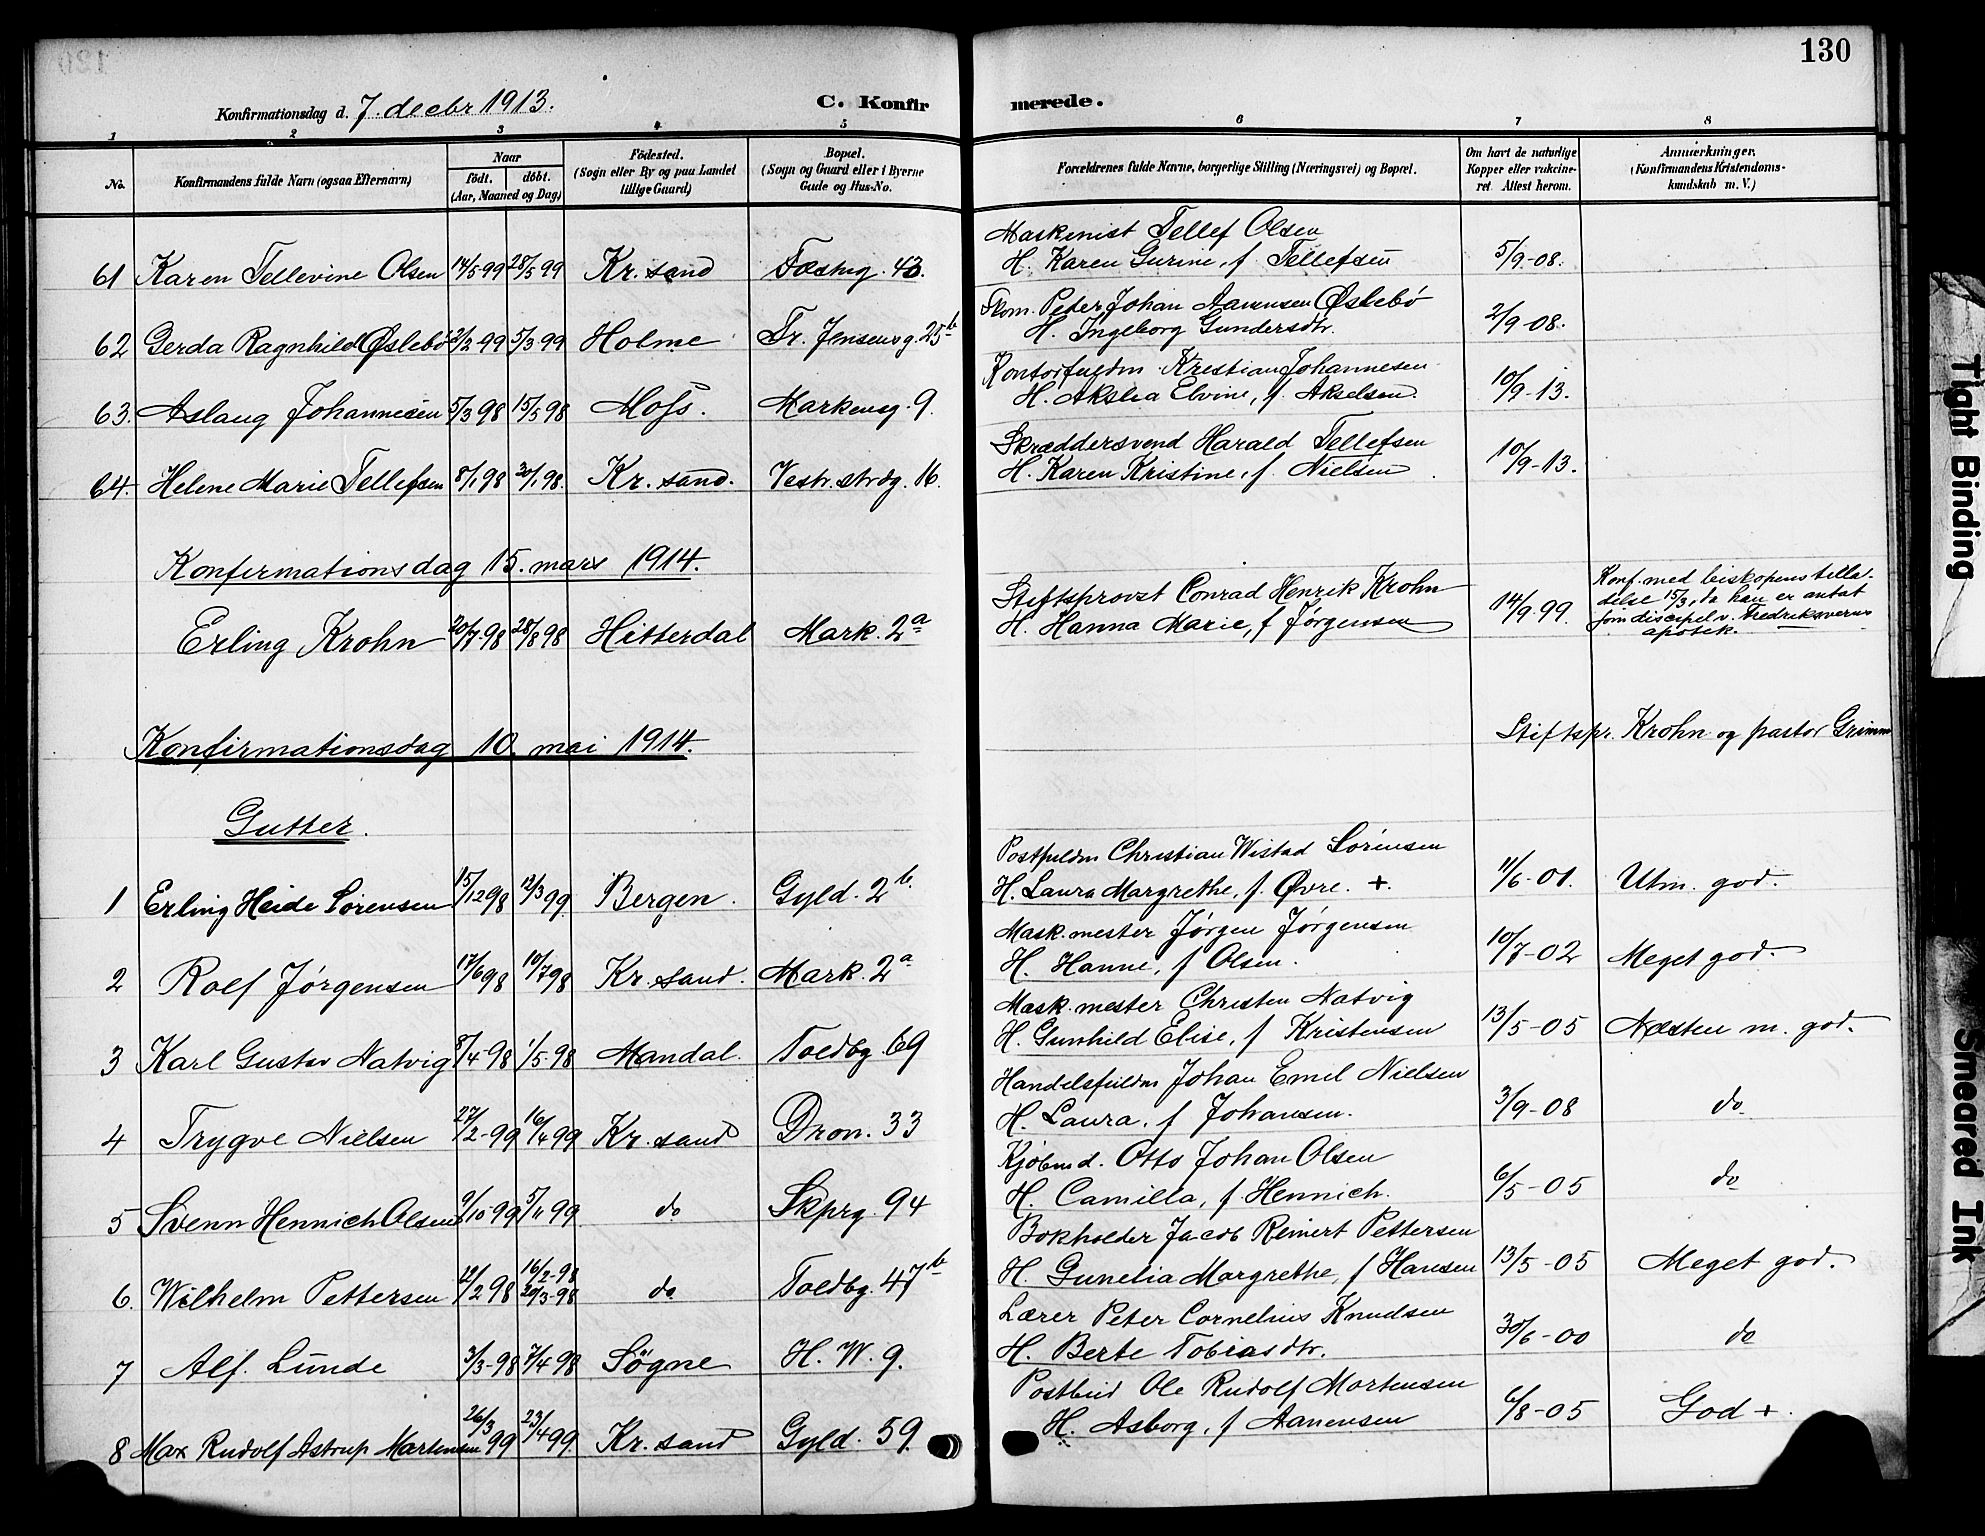 130
Konfirmationsdag d. 7. decbr 1913. C. Konfirmerede.
1 2 3 4 5 6 7 8
No. Konfirmandens fulde Navn (ogsaa Efternavn) Naar födt. döbt. (Aar, Maaned og Dag) Födested. (Sogn eller By og paa Landet tillige Gaard) Bopæl. (Sogn og Gaard eller i Byerne Gade og Hus-No. Forældrenes fulde Navne, borgerlige Stilling (Næringsvei) og Bopæl. Om havt de naturlige Kopper eller vakcineret. Attest herom. Anmærkninger. (Konfirmandens Kristendomskundskab m. V.)
Maskinist Tellef Olsen
61 Karen Tellevine Olsen 14/5 99 28/5 99 Kr. sand Fæstng. 43. H. Karen Gurine, f. Tellefsen 5/9-08.
Skom. Peter Johan Aanensen Øslebö
62 Gerda Ragnhild Øslebö 2/2 99 5/3 99 Holme Tr. Jensensg. 25b H. Ingeborg Gundersdtr. 2/9-08.
Kontorfuldm. Kristian Johannesen
63. Aslaug Johannesen 5/3 98 15/5 98 Moss. Markensg. 9. H. Akslia Elvine, f. Akselsen. 10/9-13.
Skræddersvend Harald Tellefsen
64. Helene Marie Tellefsen 8/1 98 30/1 98. Kr. sand. Vestr. strdg. 16. H. Karen Kristine, f. Nielsen 10/9-13.
Konfirmationsdag 15. mars 1914.
Stiftsprovst Conrad Henrik Krohn
Erling Krohn 20/7 98 28/8 98 Hitterdal Mark. 2a H. Hanna Marie, f. Jørgensen 14/9 99. Konf. med biskopens tilla-
delse 15/3, da han er antat
som discipel v. Fredriksværns
apotek.
Konfirmationsdag 10 mai 1914. Stiftspr. Krohn og pastor Grimm
Gutter.
Postfuldm Christian Wistad Sörensen
1 Erling Heide Sörensen 15/12 98 12/3 99 Bergen. Gyld. 2b. H. Laura Margrethe, f. Øvre. +. 11/6-01. Utm. god.
Mask.mester Jörgen Jörgensen
2 Rolf Jørgensen 17/6 98 10/7 98 Kr. sand. Mark. 2a H. Hanne, f Olsen. 10/7-02 Meget god.
Mask.mester Christen Natvig
3 Karl Gustav Natvig 8/4-98 1/5-98 Mandal. Toldbg. 69 H. Gunhild Elise, f Kristensen 13/5-05 Næsten m. god.
Handelsfuldm Johan Emil Nielsen
4 Trygve Nielsen 27/2-99 16/4 99 Kr. sand Dron. 33 H. Laura, f Johansen. 3/9-08 do
Kjöbmd. Otto Johan Olsen
5 Svenn Hennich Olsen 9/10-99 5/11 99 do Skprg. 94 H. Camilla, f. Hennich. 6/5-05 do
Bokholder Jacob Reinert Pettersen
6. Wilhelm Pettersen 12/2 98 16/2-98 20/3-98 do Toldbg. 47b H. Gunelia Margrethe, f Hansen 13/5-05 Meget god.
Lærer Peter Cornelius Knudsen
7 Alf. Lunde 3/3-98 7/4 98 Sögne H. W. 9. H. Berte Tobiasdtr. 30/6-00 do
Postbud Ole Rudolf Mortensen
8 Max Rudolf Astrup Martensen 26/3 99 23/4 99 Kr. sand Gyld. 59. H. Asborg, f Aanensen 6/8-05 God +.
Tight Binding
Smeared Ink